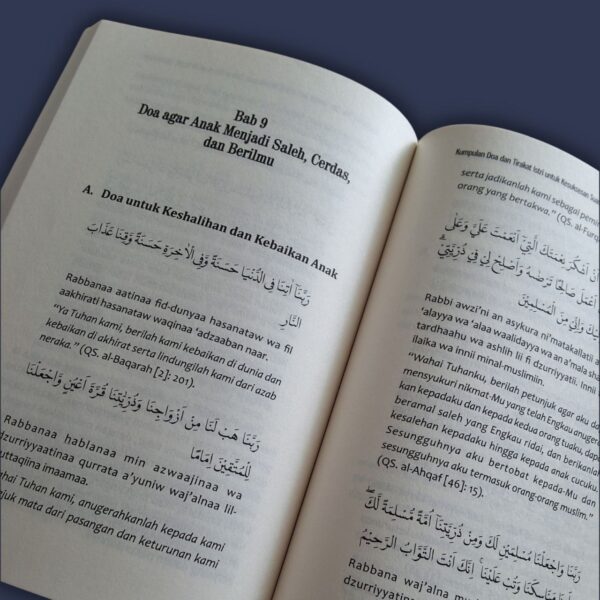 Bab 9
Doa agar Anak Menjadi Saleh, Cerdas,
dan Berilmu
A. Doa untuk Keshalihan dan Kebaikan Anak
رَبَّنَا اٰتِنَا فِى الدُّنْيَا حَسَنَةً وَّفِى الْاٰخِرَةِ حَسَنَةً وَّقِنَا عَذَابَ
النَّارِ
Rabbanaa aatinaa fid-dunyaa hasanataw wa fil
aakhirati hasanataw waqinaa 'adzaaban naar.
"Ya Tuhan kami, berilah kami kebaikan di dunia dan
kebaikan di akhirat serta lindungilah kami dari azab
neraka." (QS. al-Baqarah [2]: 201).
رَبَّنَا هَبْ لَنَا مِنْ اَزْوَاجِنَا وَذُرِّيّٰتِنَا قُرَّةَ اَعْيُنٍ وَّاجْعَلْنَا
لِلْمُتَّقِيْنَ اِمَامًا
Rabbanaa hablanaa min azwaajinaa wa
dzurriyyaatinaa qurrata a'yuniw waj'alnaa lil-
uttaqiina imaamaa.
ahai Tuhan kami, anugerahkanlah kepada kami
juk mata dari pasangan dan keturunan kami
Kumpulan Doa dan Tirakat Istri untuk Kesuksesan
serta jadikanlah kami sebagai
orang yang bertakwa." (QS. al-Furq
اَنْ اَشْكُرَ نِعْمَتَكَ الَّتِيْٓ اَنْعَمْتَ عَلَيَّ وَعَلٰى
اَعْمَلَ صَالِحًا تَرْضٰىهُ وَاَصْلِحْ لِيْ فِيْ ذُرِّيَّتِيْۗ
وَاِنِّيْ مِنَ الْمُسْلِمِيْنَ
Rabbi awzi'ni an asykura ni'matakallatii a
'alayya wa 'alaa waalidayya wa an a'mala sha
tardhaahu wa ashlih lii fi dzurriyyatii. Innii
ilaika wa innii minal-muslimiin.
"Wahai Tuhanku, berilah petunjuk agar aku da
mensyukuri nikmat-Mu yang telah Engkau anuger
kan kepadaku dan kepada kedua orang tuaku, dap
beramal saleh yang Engkau ridai, dan berikanlah
kesalehan kepadaku hingga kepada anak cucuku.
Sesungguhnya aku bertobat kepada-Mu dan
sesungguhnya aku termasuk orang-orang muslim."
(QS. al-Ahqaf [46]: 15).
رَبَّنَا وَاجْعَلْنَا مُسْلِمَيْنِ لَكَ وَمِنْ ذُرِّيَّتِنَآ اُمَّةً مُّسْلِمَةً لَّكَۖ
مَنَاسِكَنَا وَتُبْ عَلَيْنَا ۚ اِنَّكَ اَنْتَ التَّوَّابُ الرَّحِيْمُ
Rabbana waj'alna
dzurriyyatinaa